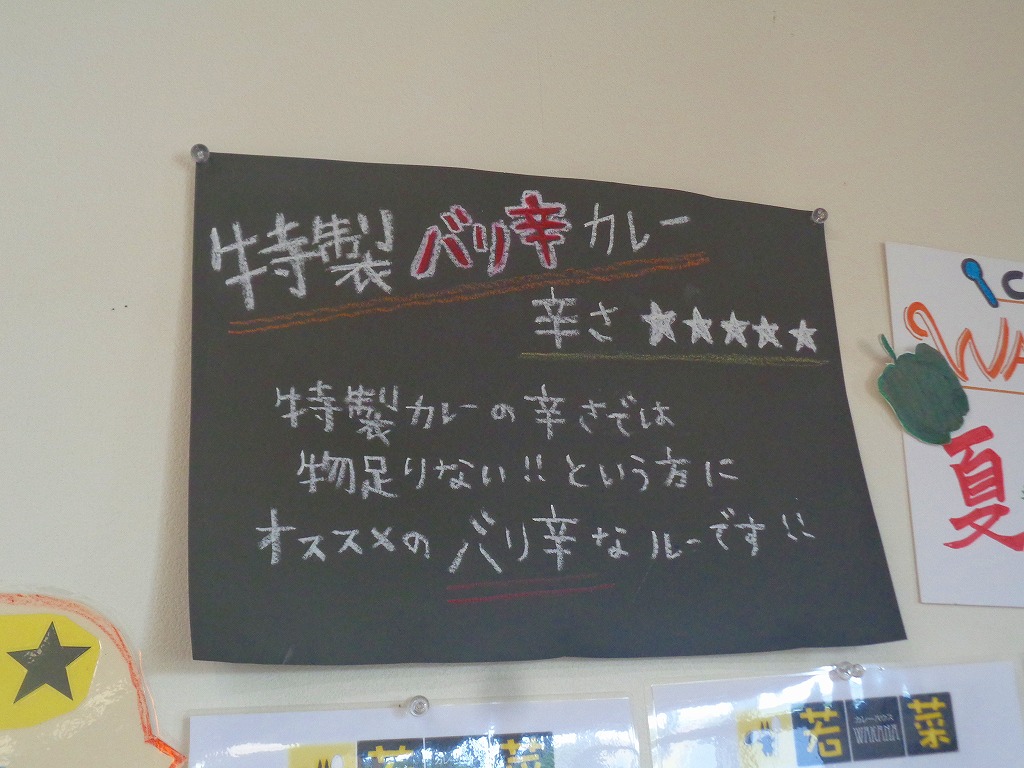 特製バリ辛カレー
辛さ ★★★★★
特製カレーの辛さでは
物足りない!!という方に
オススメのバリ辛なルーです!!
WA
夏
若 カレーハウス WAKANA 菜